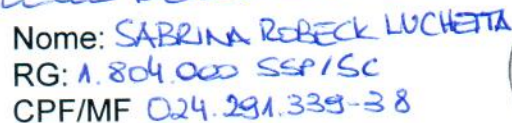 Nome: SABRINA ROBECK LUCHETTA
RG: 1.804.000 SSP/SC
CPF/MF 024.291.339-38